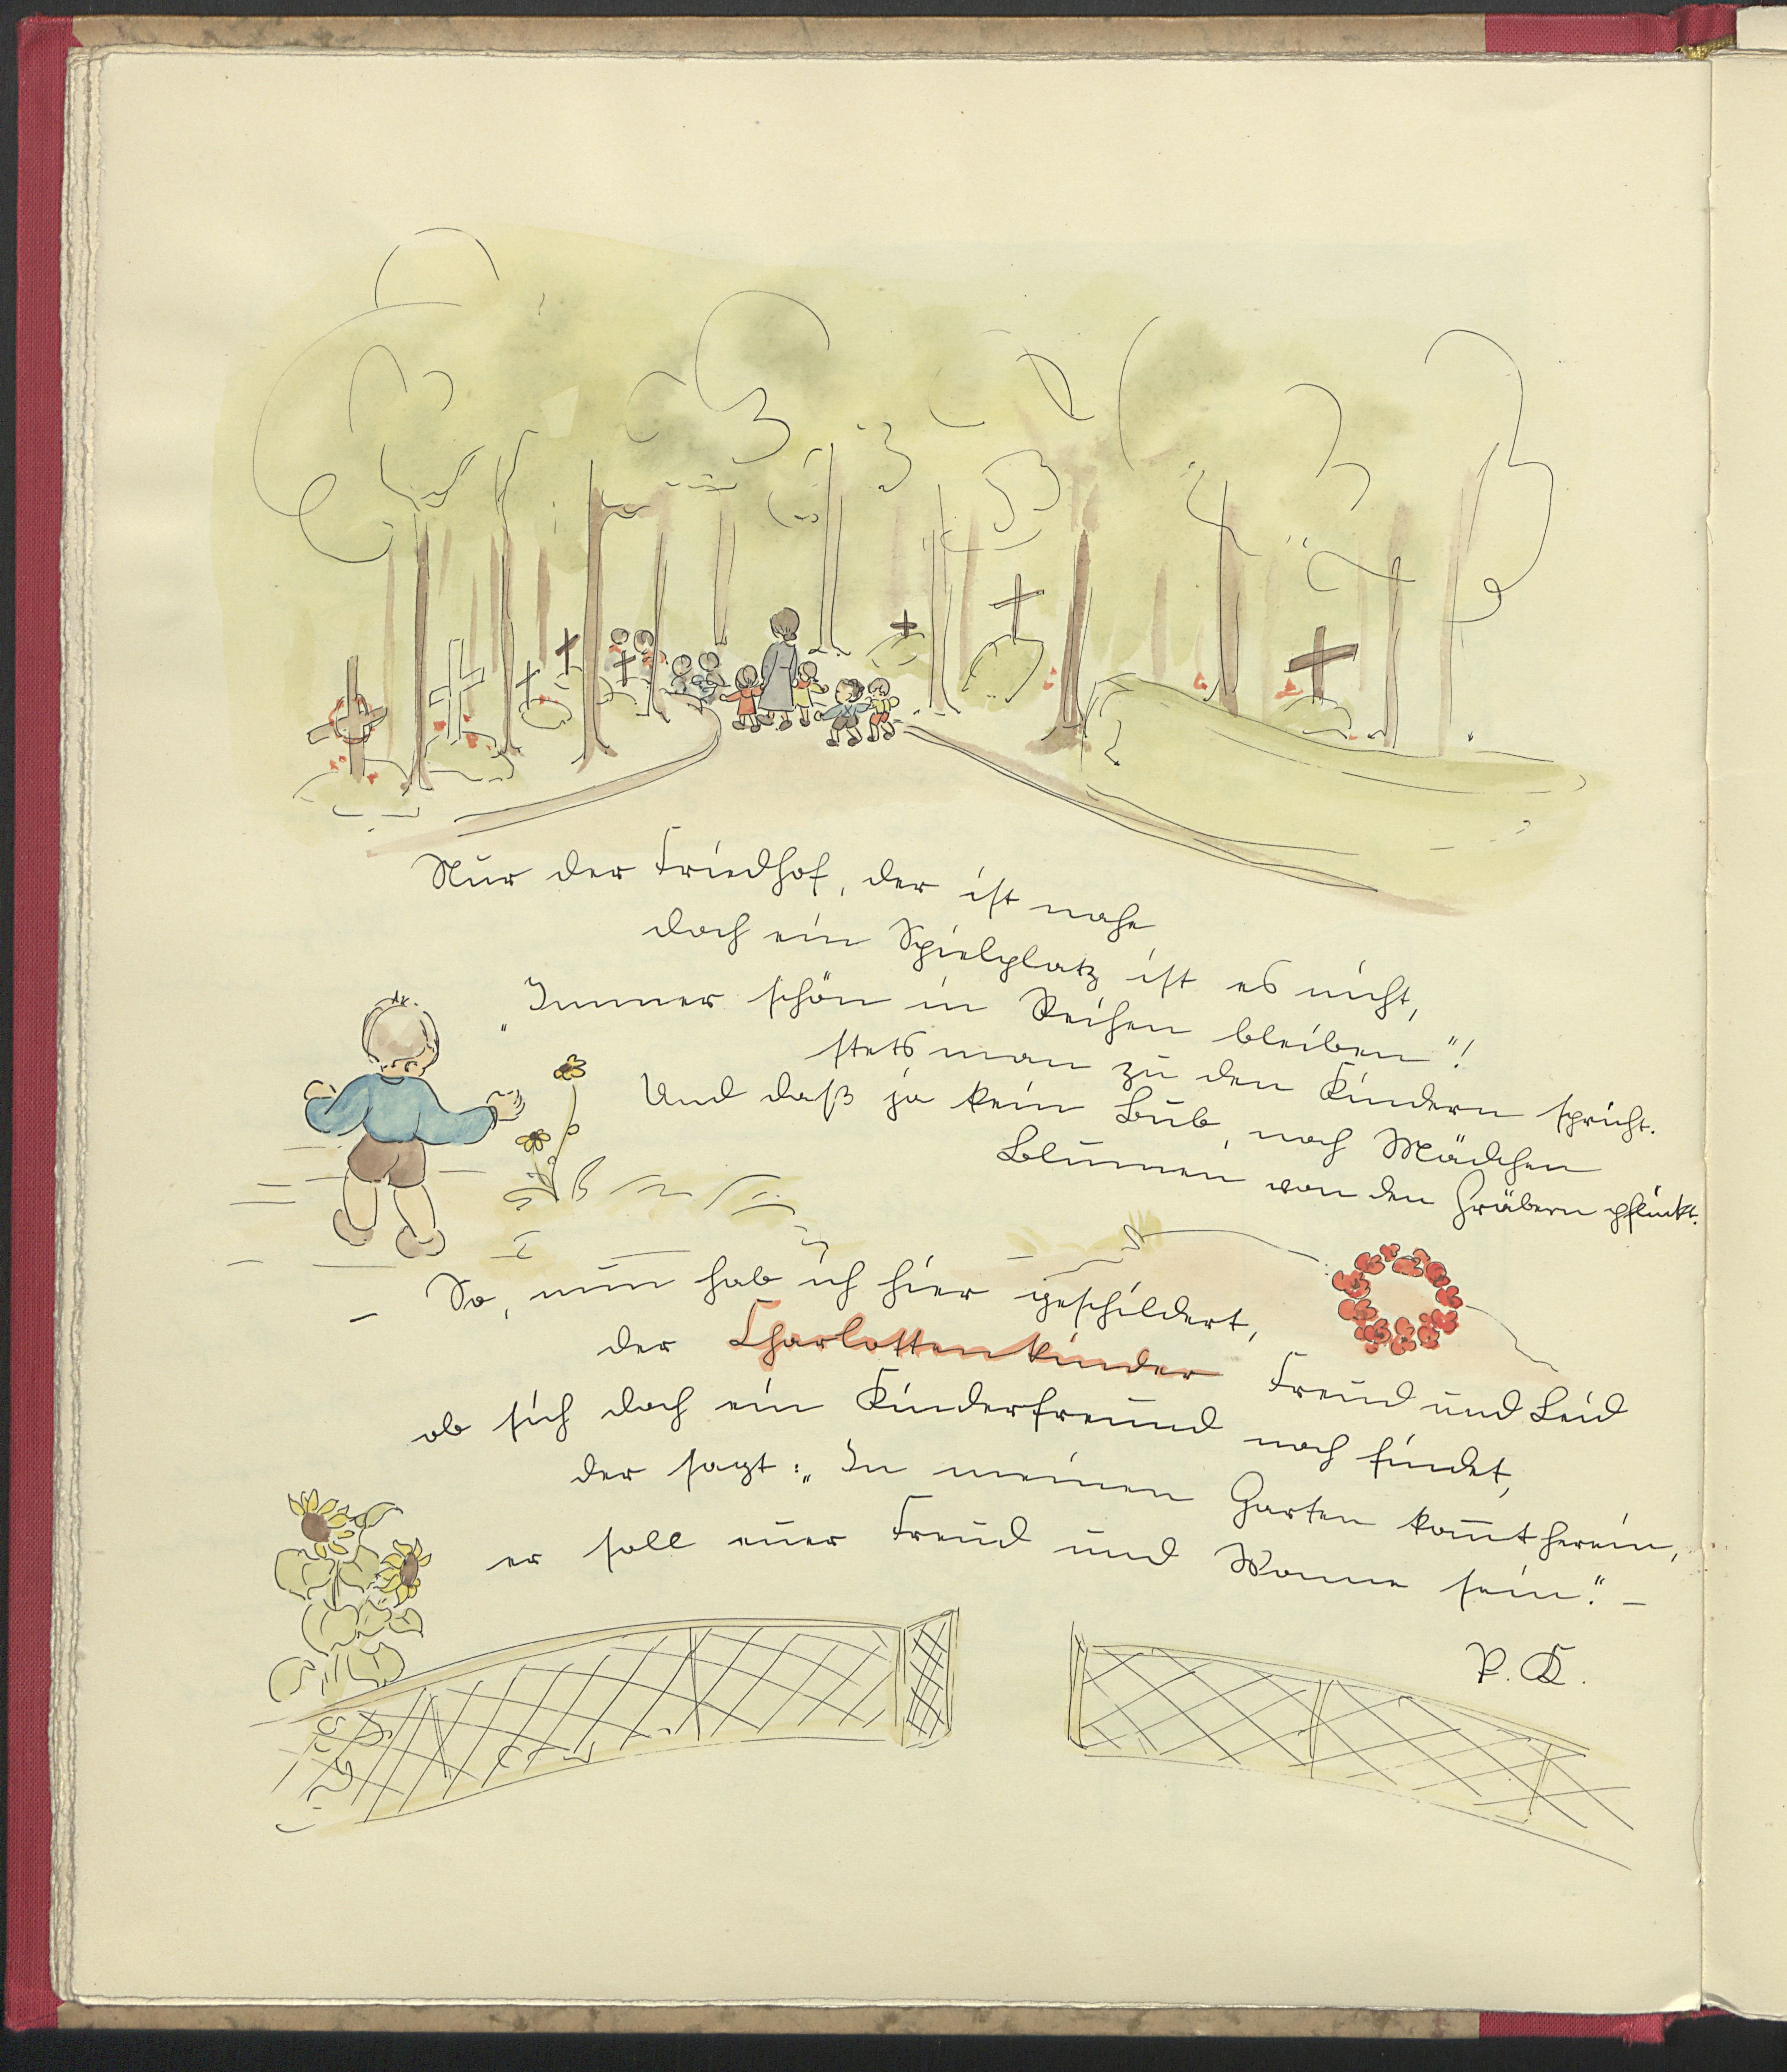 Nur der Friedhof, der ist nahe
doch ein Spielplatz ist es nicht,
"Immer schön in Reihen bleiben"!
stets man zu den Kindern spricht.
Und daß ja kein Bub, noch Mädchen
Blumen von den Gräbern pflückt.
– So, nun hab ich hier geschildert,
der Charlottenkinder Freud und Leid
ob sich doch ein Kinderfreund noch findet,
der sagt: „In meinen Garten kom̅t herein,
er soll euer Freud und Wonne sein." –
P. K.